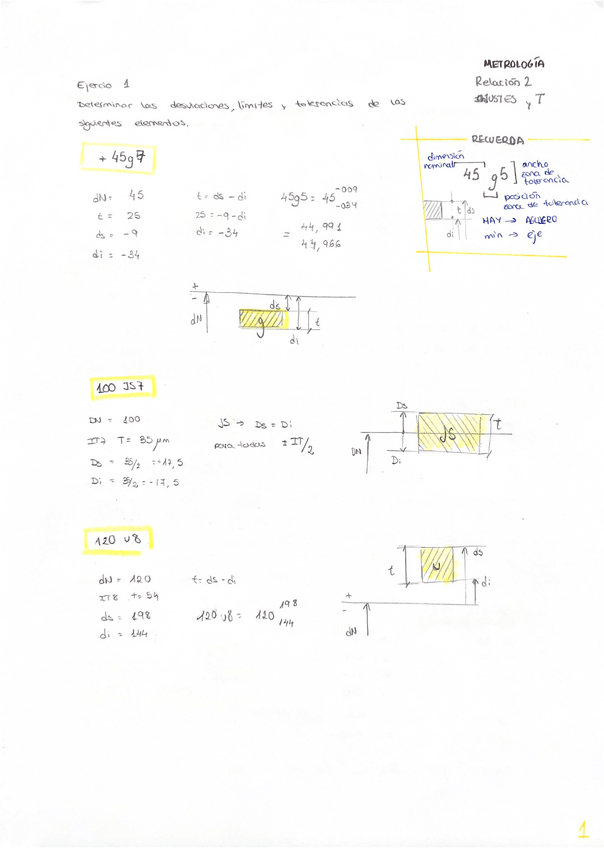 METROLOGÍA
Relación 2
AJUSTES y T
Ejercio 1
Determinar las desviaciones, límites y tolerencias de los
siguientes elementos.
RECUERDA
dimensión
nominal
45 g5
ancho
zona de
tolerancia
posición
zona de tolerancia
MAY → AGUJERO
min → eje
t
ds
di
+ 45g7
dN = 45
t = 25
ds = -9
di = -34
t = ds - di
25 = -9 - di
di = -34
45g5 = 45 -009 -034
= 44,991
44,966
+
-
dN
ds
g
t
di
100 JS7
DN = 100
IT7 T = 35 μm
Ds = 35/2 = +17,5
Di = 35/2 = -17,5
JS → Ds = Di
para todas ± IT/2
Ds
JS
t
DN
Di
120 u8
dN = 120
IT8 t = 54
ds = 198
di = 144
t = ds - di
120 u8 = 120 198 144
t
u
ds
di
+
-
dN
1